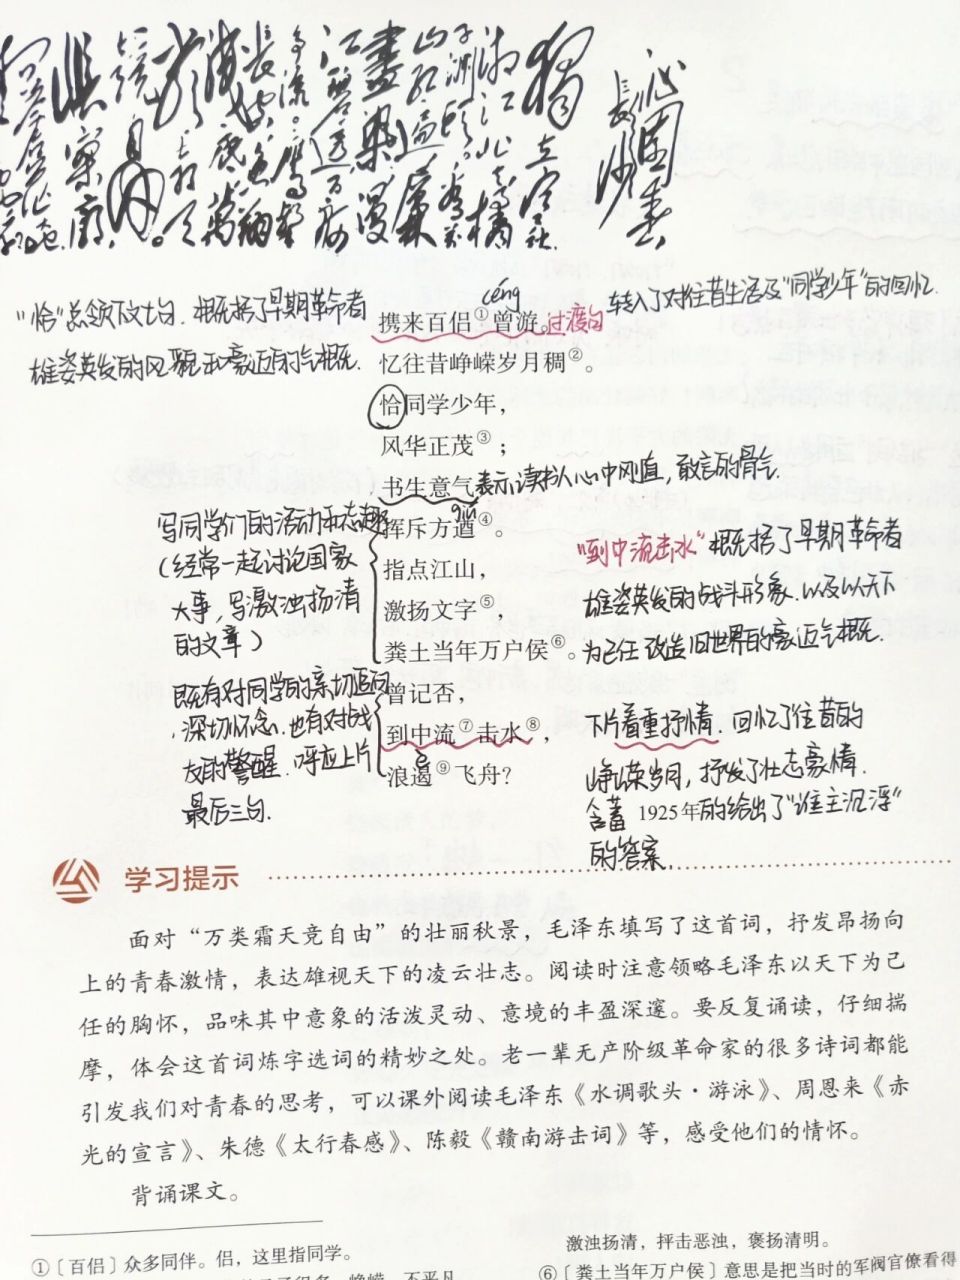 沁园春
长沙
独立寒秋
湘江北去橘
子洲头看万
山红遍层林
尽染漫
江碧透百舸
争流。鹰击
长空
鱼翔
浅底万
类霜天
竞自由。
怅寥廓
问苍茫大地
céng
携来百侣①曾游。过渡句
转入了对往昔生活及“同学少年”的回忆.
“恰”总领下文七句. 概括了早期革命者
雄姿英发的风貌和豪迈的气概.
忆往昔峥嵘岁月稠②。
恰同学少年，
风华正茂③；
书生意气表示读书人心中刚直，敢言的骨气.
qiú
挥斥方遒④。
写同学们的活动和志趣
(经常一起讨论国家
大事，写激浊扬清
的文章)
指点江山，
激扬文字⑤，
粪土当年万户侯⑥。
“到中流击水”概括了早期革命者
雄姿英发的战斗形象.以及以天下
为己任 改造旧世界的豪迈气概.
既有对同学的亲切追问
.深切怀念.也有对战
友的警醒.呼应上片
最后三句.
曾记否，
到中流⑦击水⑧，
è
浪遏⑨飞舟？
下片着重抒情.回忆了往昔的
峥嵘岁月，抒发了壮志豪情.
含蓄 1925年的给出了“谁主沉浮”
的答案.
学习提示
面对“万类霜天竞自由”的壮丽秋景，毛泽东填写了这首词，抒发昂扬向
上的青春激情，表达雄视天下的凌云壮志。阅读时注意领略毛泽东以天下为己
任的胸怀，品味其中意象的活泼灵动、意境的丰盈深邃。要反复诵读，仔细揣
摩，体会这首词炼字选词的精妙之处。老一辈无产阶级革命家的很多诗词都能
引发我们对青春的思考，可以课外阅读毛泽东《水调歌头·游泳》、周恩来《赤
光的宣言》、朱德《太行春感》、陈毅《赣南游击词》等，感受他们的情怀。
背诵课文。
①〔百侣〕众多同伴。侣，这里指同学。
激浊扬清，抨击恶浊，褒扬清明。
⑥〔粪土当年万户侯〕意思是把当时的军阀官僚看得